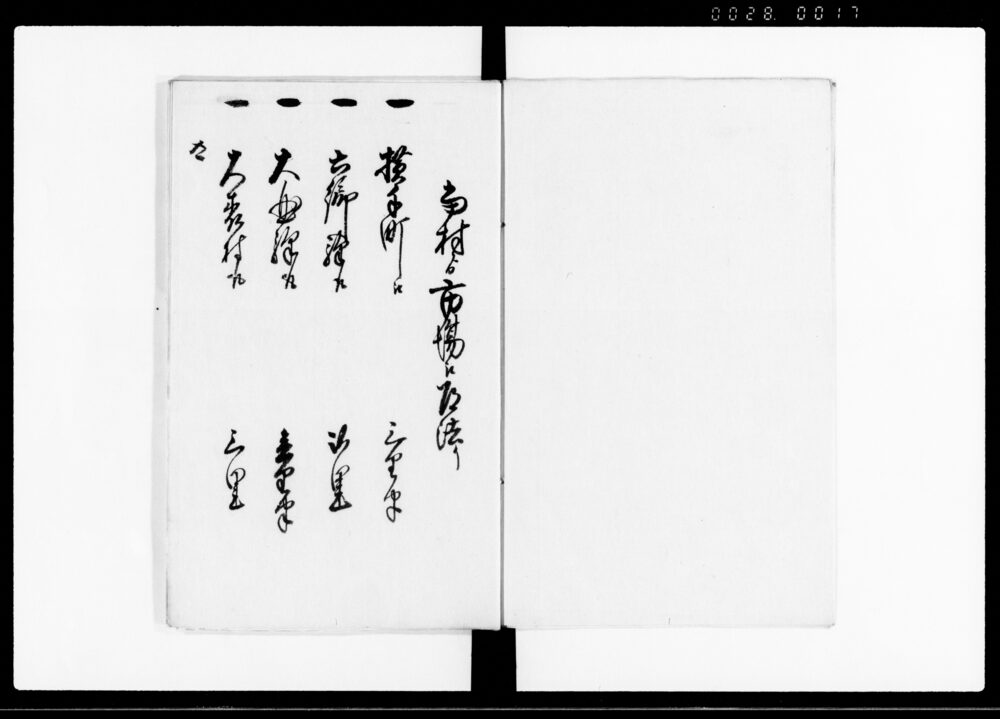 0028. 0017
当村ゟ市場江道法り
一 横手町江 三里半
一 六郷驛江 弐里
一 大曲驛江 壱里半
一 大森村江 三里